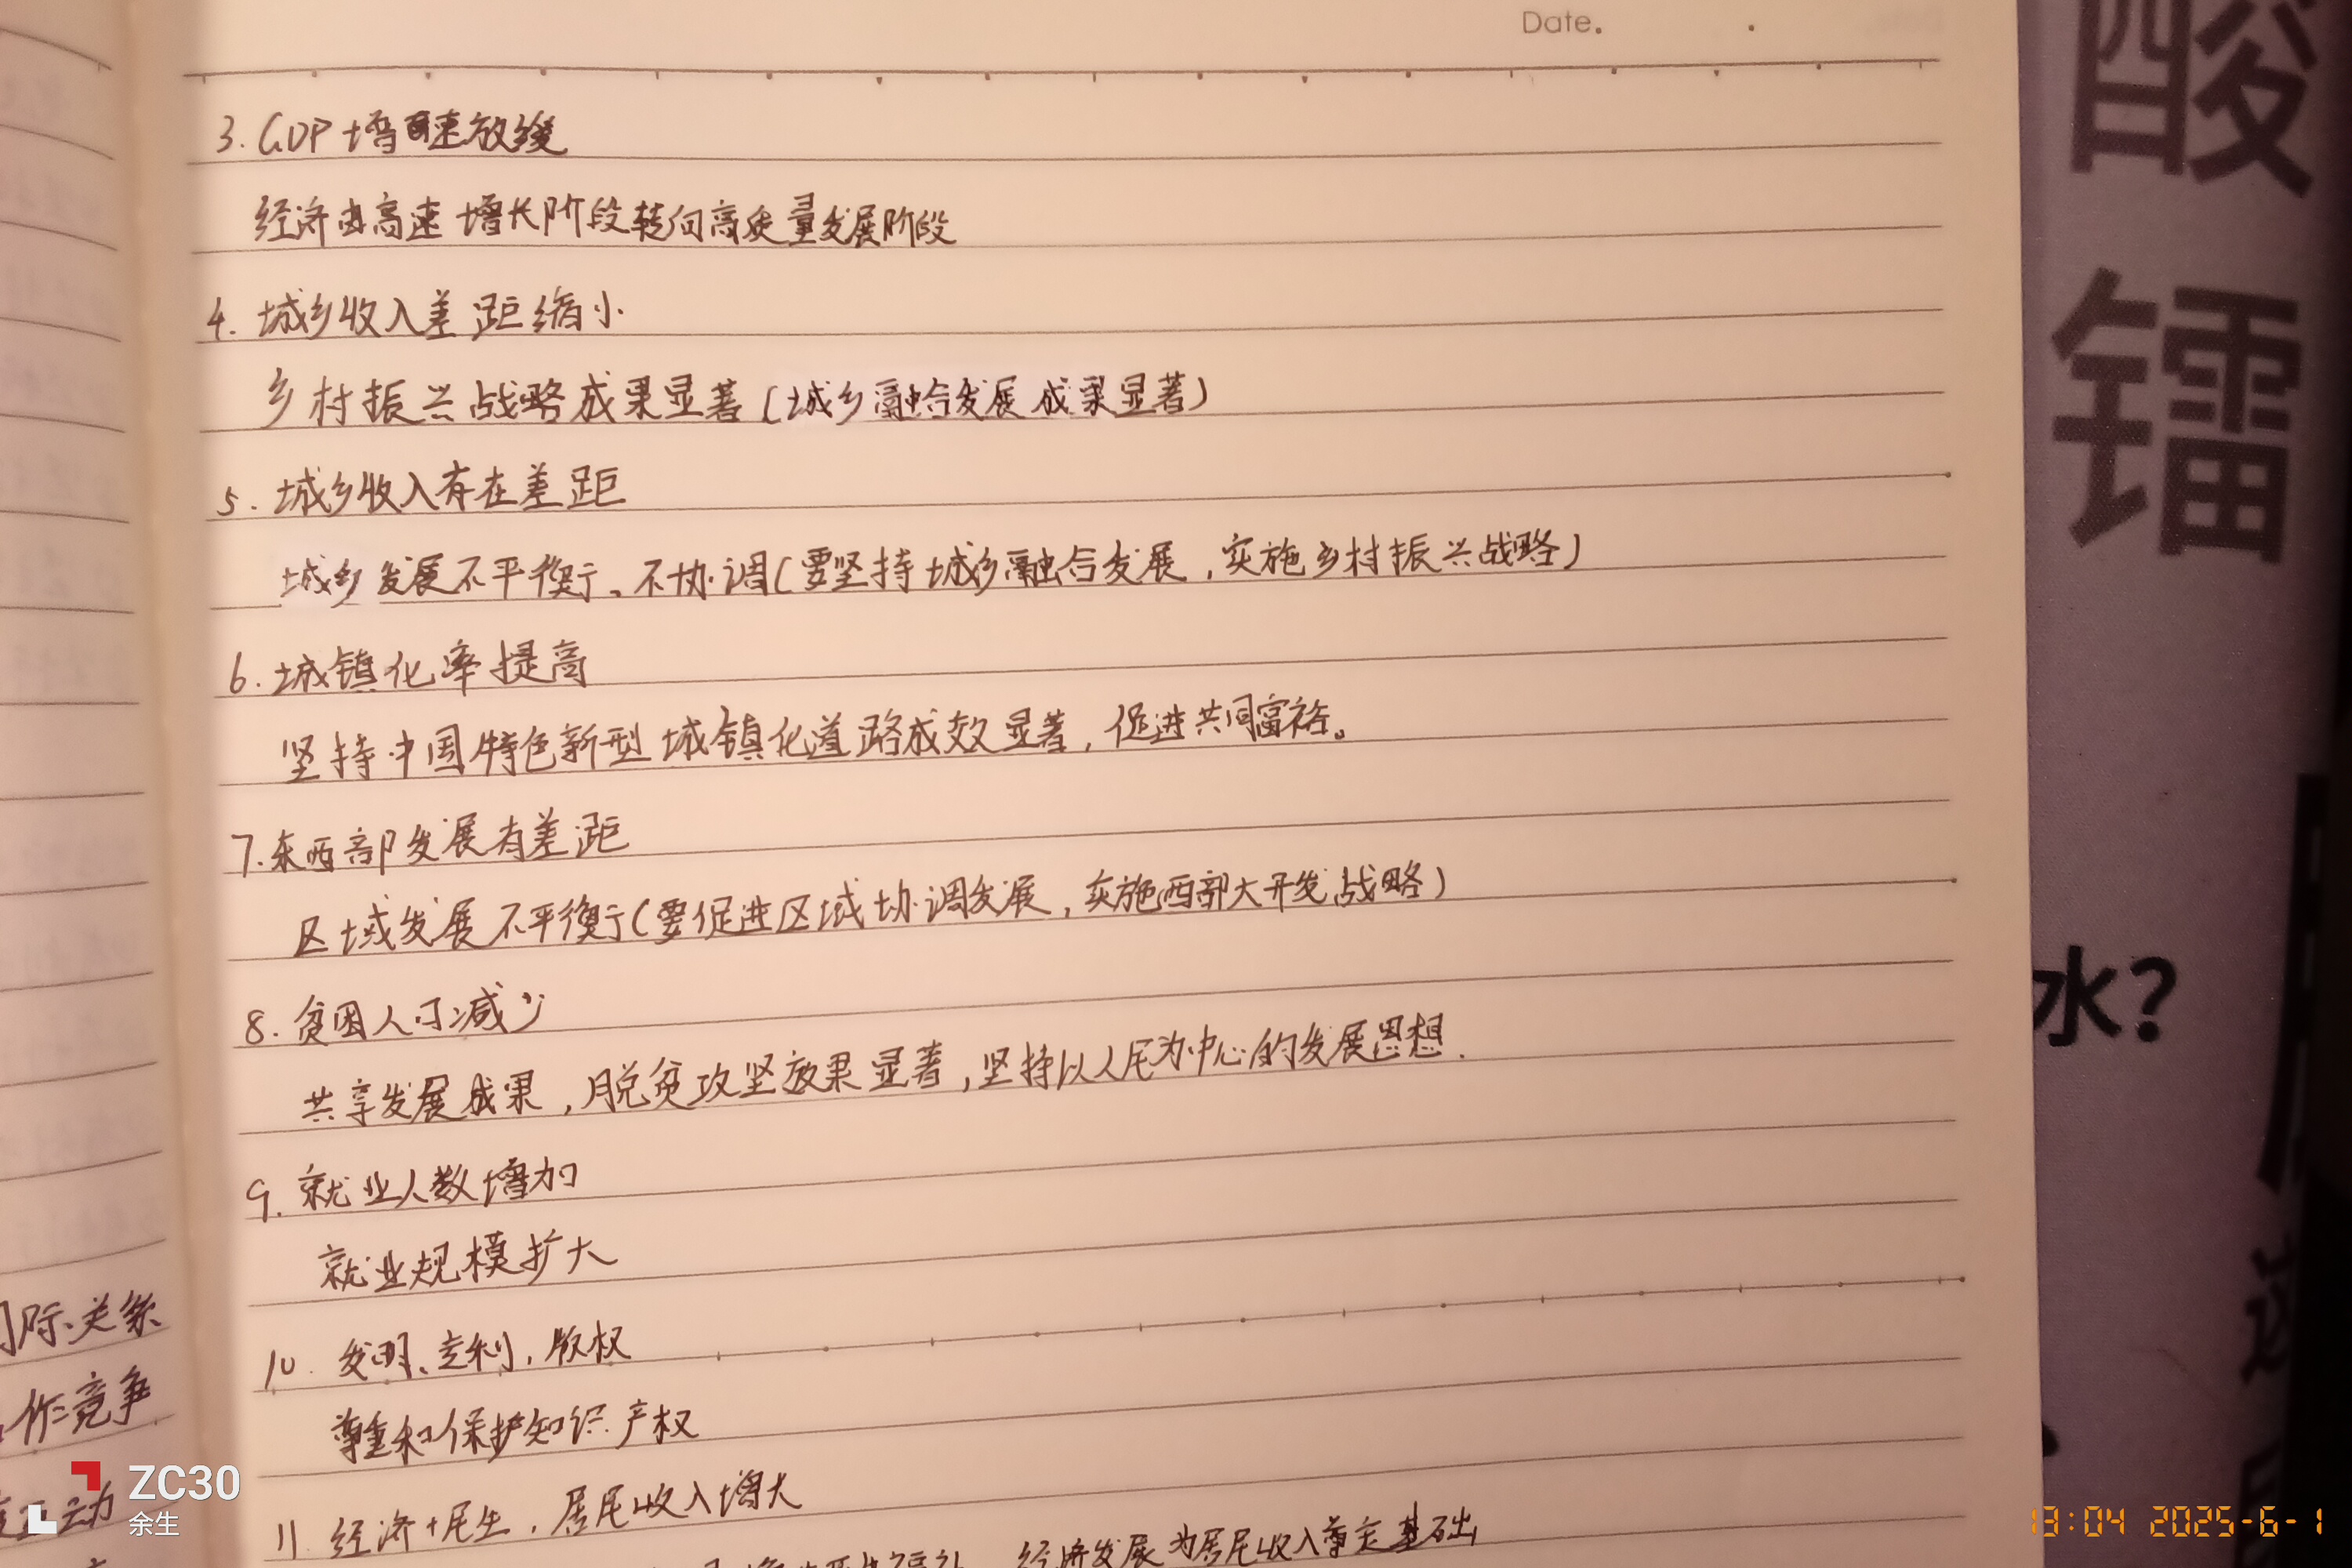 Date.
3. GDP增速放缓
经济由高速增长阶段转向高质量发展阶段
4. 城乡收入差距缩小
乡村振兴战略成果显著(城乡融合发展成果显著)
5. 城乡收入存在差距
城乡发展不平衡、不协调(要坚持城乡融合发展,实施乡村振兴战略)
6. 城镇化率提高
坚持中国特色新型城镇化道路成效显著,促进共同富裕。
7. 东西部发展有差距
区域发展不平衡(要促进区域协调发展,实施西部大开发战略)
8. 贫困人口减少
共享发展成果,脱贫攻坚效果显著,坚持以人民为中心的发展思想.
9. 就业人数增加
就业规模扩大
10. 发明、专利,版权
尊重和保护知识产权
11. 经济+民生,居民收入增大
经济发展为居民收入奠定基础
际关系
作竞争
动
酸
镭
水?
ZC30
余生
13:04 2025-6-1